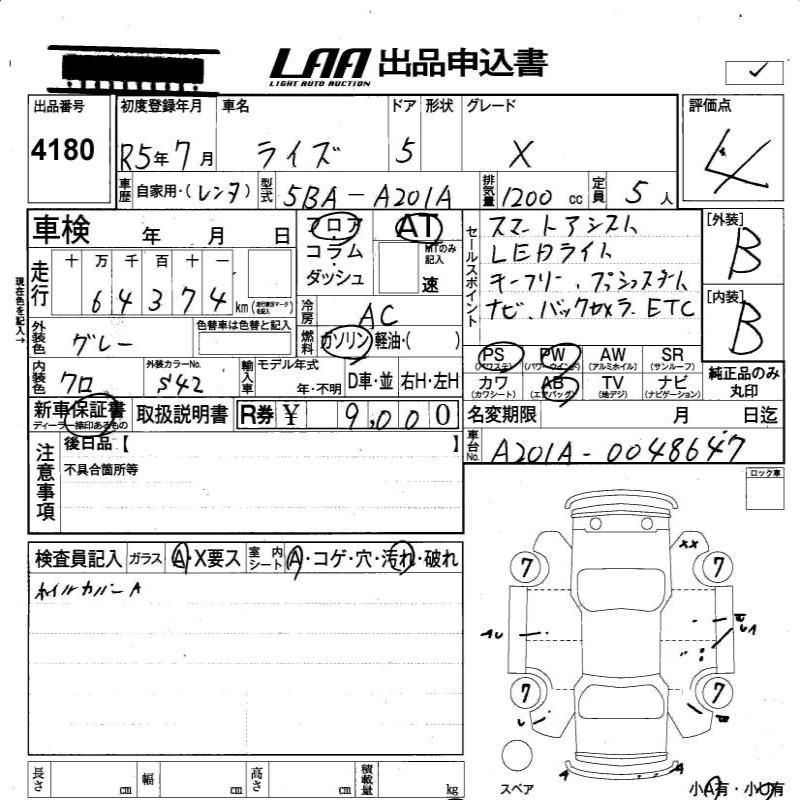 LAA 出品申込書
LIGHT AUTO AUCTION
出品番号 4180
初度登録年月 R5年7月
車名 ライズ
ドア 5
形状
グレード X
評価点 4
車歴 自家用・(レンタ)
型式 5BA-A201A
排気量 1200 cc
定員 5人
車検 年 月 日
フロア コラム ダッシュ
AT MTのみ記入 速
セールスポイント
スマートアシスト
LEDライト
キーフリー、プッシュスタート
ナビ、バックカメラ、ETC
[外装] B
[内装] B
現在色を記入→
走行 十 万 千 百 十 一
64374 km (走行積算マーク)
冷房 AC
燃料 ガソリン 軽油・( )
外装色 グレー
色替車は色替と記入
内装色 クロ
外装カラーNo. S42
輸入車 モデル年式 年・不明 D車・並 右H・左H
PS (パワステ) PW (パワーウインド) AW (アルミホイル) SR (サンルーフ)
カワ (カワシート) AB (エアバッグ) TV (地デジ) ナビ (ナビゲーション)
純正品のみ丸印
新車保証書 ディーラー捺印あるもの
取扱説明書
R券 ¥ 9,000
名変期限 月 日迄
車台No. A201A-0048647
注意事項
後日品【 】
不具合箇所等
ロック車
検査員記入 ガラス A・X要ス 室内シート A・コゲ・穴・汚れ・破れ
ホイルカバーA
XX
7 7
AU
UA
7 7
U
A A
スペア
小A有・小U有
長さ cm 幅 cm 高さ cm 積載量 kg